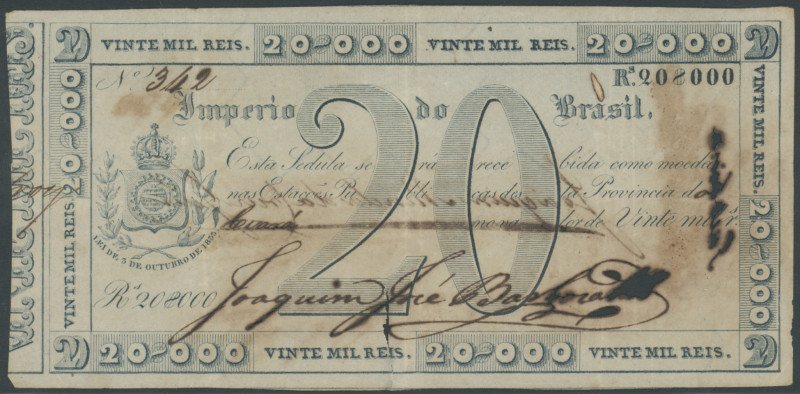 VINTE MIL REIS. 20=000 VINTE MIL REIS. 20=000
Nº 342
Rs. 20$000
Imperio do Brasil.
Esta Sedula será recebida como moeda
nas Estações Publicas desta Provincia do
Ceará no valor de Vinte mil rs
LEI DE 3 DE OUTUBRO DE 1833
Rs 20$000
20
Joaquim José Barbosa
20=000
VINTE MIL REIS.
VINTE MIL REIS.
20=000
20=000 VINTE MIL REIS. 20=000 VINTE MIL REIS.